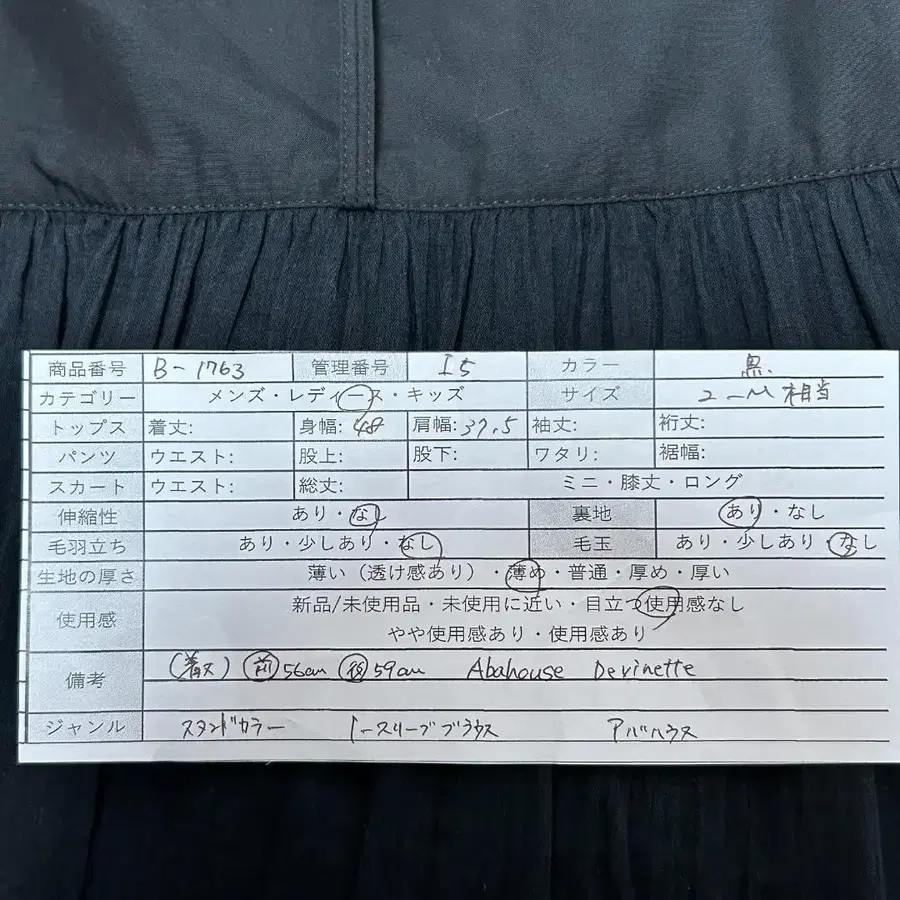 商品番号 B-1763 管理番号 I5 カラー 黒
カテゴリー メンズ・レディース・キッズ サイズ 2-M相当
トップス 着丈: 身幅: 48 肩幅: 37.5 袖丈: 裄丈:
パンツ ウエスト: 股上: 股下: ワタリ: 裾幅:
スカート ウエスト: 総丈: ミニ・膝丈・ロング
伸縮性 あり・なし 裏地 あり・なし
毛羽立ち あり・少しあり・なし 毛玉 あり・少しあり・なし
生地の厚さ 薄い（透け感あり）・薄め・普通・厚め・厚い
使用感 新品/未使用品・未使用に近い・目立つ使用感なし
やや使用感あり・使用感あり
備考 (着丈) 前 56cm 後 59cm Abahouse Devinette
ジャンル スタンドカラー ノースリーブブラウス アバハウス